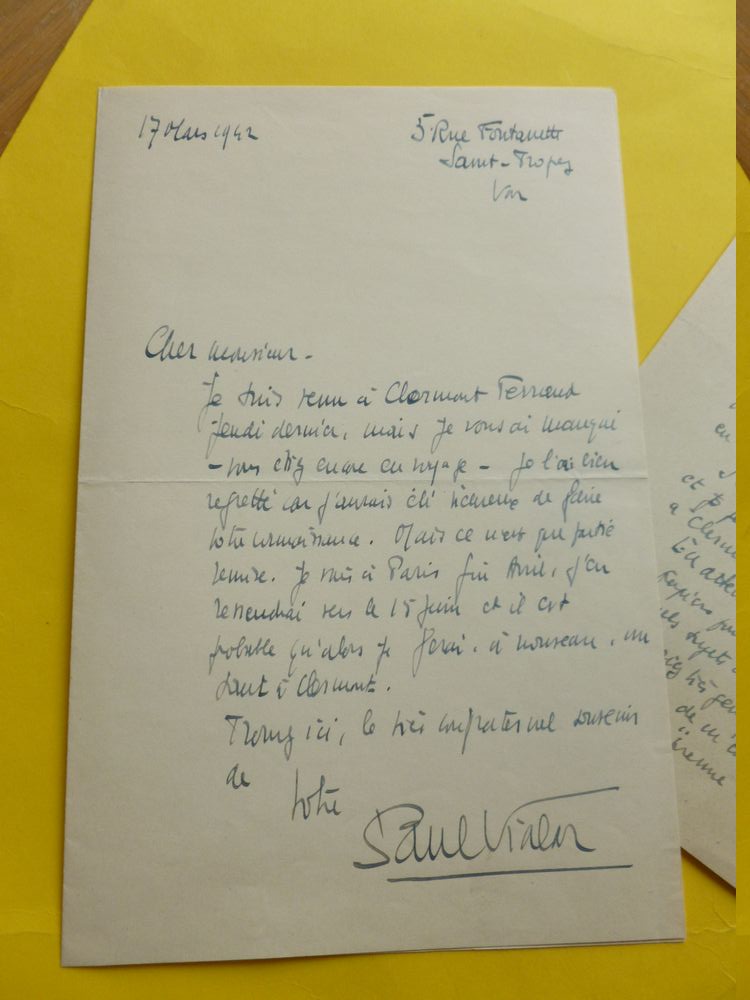 17 Mars 1942
5 Rue Fontanette
Saint-Tropez
Var
Cher monsieur -
Je suis venu à Clermont Ferrand
jeudi dernier, mais je vous ai manqué
- vous étiez encore en voyage - Je l'ai bien
regretté car j'aurais été heureux de faire
votre connaissance. Mais ce n'est que partie
remise. Je vais à Paris fin Avril, j'en
redescendrai vers le 15 juin et il est
probable qu'alors je ferai, à nouveau, un
saut à Clermont.
Trouvez ici, le très confraternel souvenir
de votre
Paul Vialar
en
et je
à Clerm
de m'